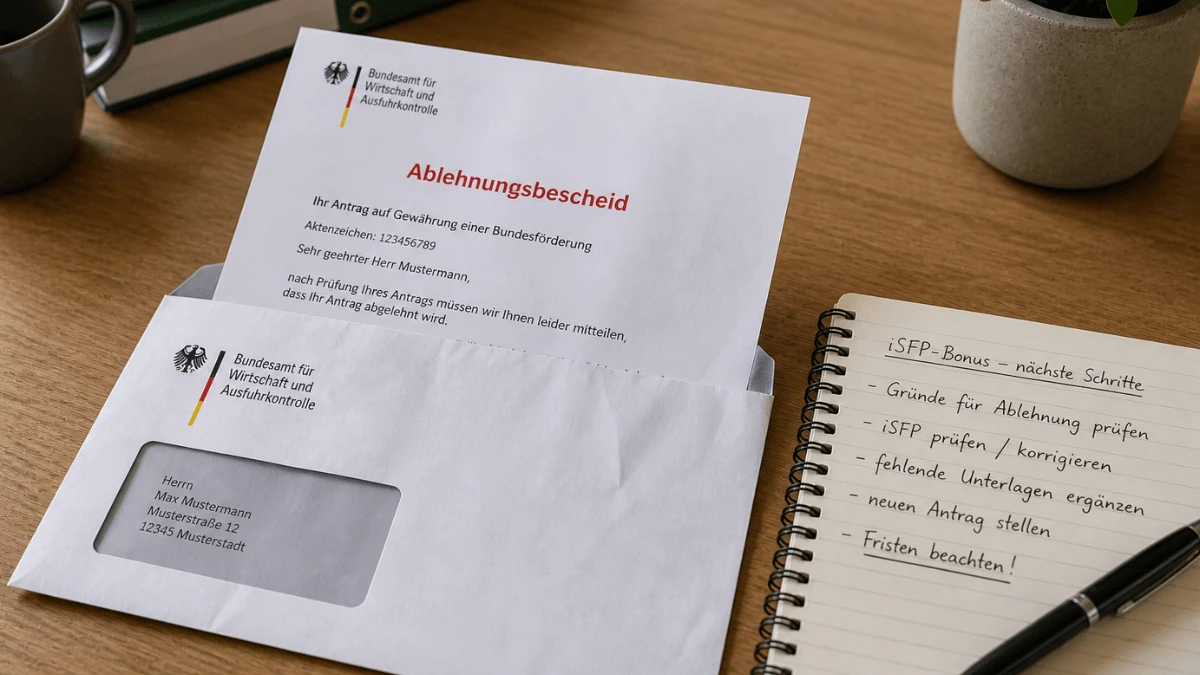 Bundesamt für
Wirtschaft und
Ausfuhrkontrolle
Ablehnungsbescheid
Ihr Antrag auf Gewährung einer Bundesförderung
Aktenzeichen: 123456789
Sehr geehrter Herr Mustermann,
nach Prüfung Ihres Antrags müssen wir Ihnen leider mitteilen,
dass Ihr Antrag abgelehnt wird.
Bundesamt für
Wirtschaft und
Ausfuhrkontrolle
Herrn
Max Mustermann
Musterstraße 12
12345 Musterstadt
iSFP-Bonus – nächste Schritte
- Gründe für Ablehnung prüfen
- iSFP prüfen / korrigieren
- fehlende Unterlagen ergänzen
- neuen Antrag stellen
- Fristen beachten!